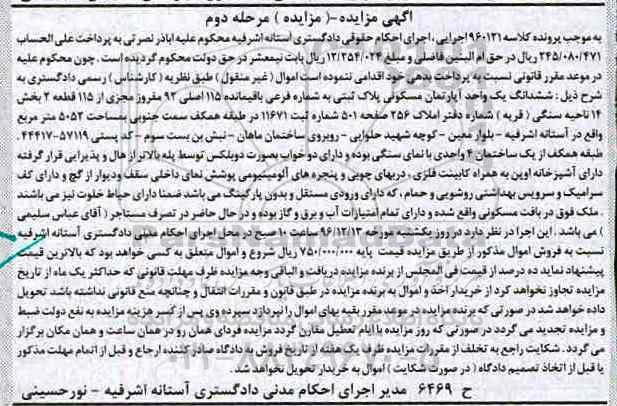 آگهی مزایده-( مزایده ) مرحله دوم
به موجب پرونده کلاسه ۹۶۰۱۲۱ اجرایی ، اجرای احکام حقوقی دادگستری آستانه اشرفیه محکوم علیه اباذر نصرتی به پرداخت علی الحساب
۲۴۵/۰۸۰/۴۷۱ ریال در حق ام البنین فاضلی و مبلغ ۱۲/۲۵۴/۰۲۴ ریال بابت نیمعشر در حق دولت محکوم گردیده است . چون محکوم علیه
در موعد مقرر قانونی نسبت به پرداخت بدهی خود اقدامی ننموده است اموال ( غیر منقول ) طبق نظریه ( کارشناس ) رسمی دادگستری به
شرح ذیل : ششدانگ یک واحد آپارتمان مسکونی پلاک ثبتی به شماره فرعی باقیمانده ۱۱۵ اصلی ۹۲ مفروز مجزی از ۱۱۵ قطعه ۲ بخش
۱۴ ناحیه سنگی ( قریه ) شماره دفتر املاک ۲۵۶ صفحه ۵۰۱ شماره ثبت ۱۱۶۷۱ در طبقه همکف سمت جنوبی بمساحت ۵۰۵۲ متر مربع
واقع در آستانه اشرفیه - بلوار معین - کوچه شهید حلوایی - روبروی ساختمان ماهان - نبش بن بست سوم - کد پستی ۵۷۱۱۹-۴۴۴۱۷ .
طبقه همکف از یک ساختمان ۴ واحدی با نمای سنگی بوده و دارای دو خواب بصورت دوبلکس توسط پله بالاتر از هال و پذیرایی قرار گرفته
دارای آشپزخانه اوپن با کابینت فلزی ، دربهای چوبی و پنجره های آلومینیومی پوشش نمای داخلی سقف ودیوار از گچ و دارای کف
سرامیک و سرویس بهداشتی روشویی و حمام ، که دارای ورودی مستقل و بدون پارکینگ می باشد ضمنا دارای حیاط خلوت نیز می باشند
. ملک فوق در بافت مسکونی واقع شده و دارای تمام امتیازات آب و برق و گاز بوده و در حال حاضر در تصرف مستاجر ( آقای عباس سلیمی
) می باشد . این اجرا در نظر دارد در روز یکشنبه مورخه ۹۶/۱۲/۱۳ ساعت ۱۰ صبح در محل اجرای احکام مدنی دادگستری آستانه اشرفیه
نسبت به فروش اموال مذکور از طریق مزایده قیمت پایه ۷۵۰/۰۰۰/۰۰۰ ریال شروع و اموال متعلق به کسی خواهد بود که بالاترین قیمت
پیشنهاد نماید ده درصد از قیمت فی المجلس از برنده مزایده دریافت و الباقی وجه مزایده ظرف مهلت قانونی که حداکثر یک ماه از تاریخ
مزایده تجاوز نخواهد کرد از خریدار اخذ و اموال به برنده مزایده در طبق قانون و مقررات انتقال و چنانچه منع قانونی نداشته باشد تحویل
داده خواهد شد در صورتی که برنده مزایده در موعد مقرر بقیه بهای اموال را نپردازد سپرده وی پس از کسر هزینه مزایده به نفع دولت ضبط
و مزایده تجدید می گردد در صورتی که روز مزایده با ایام تعطیل مقارن گردد مزایده فردای همان روز در همان ساعت و همان مکان برگزار
می گردد . شکایت راجع به تخلف از مقررات مزایده ظرف یک هفته از تاریخ فروش به دادگاه صادر کننده ارجاع و قبل از اتمام مهلت مذکور
یا قبل از اتخاذ تصمیم دادگاه ( در صورت شکایت ) اموال به خریدار تحویل نخواهد شد .
ح ۶۴۶۹ مدیر اجرای احکام مدنی دادگستری آستانه اشرفیه - نورحسینی